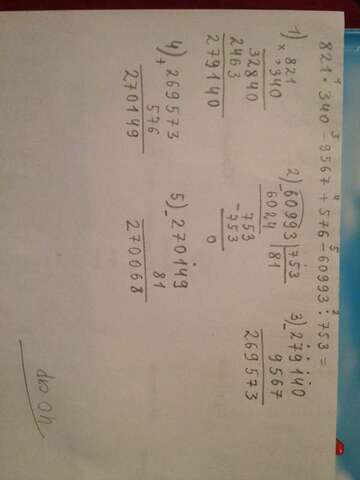 821 · 340 - 9567 + 576 - 60993 : 753 =
1 3 4 5 2
1) × 821
340
32840
2463
279140
2) - 60993 | 753
6024 | 81
753
- 753
0
3) - 279140
9567
269573
4) + 269573
576
270149
5) - 270149
81
270068